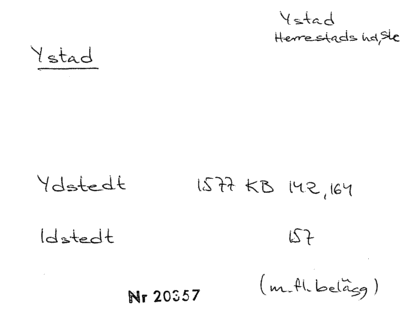 Ystad
Herrestads hd, Sk
Ystad
Ydstedt 1577 KB 142, 164
Idstedt 157
(m. fl. belägg)
Nr 20357